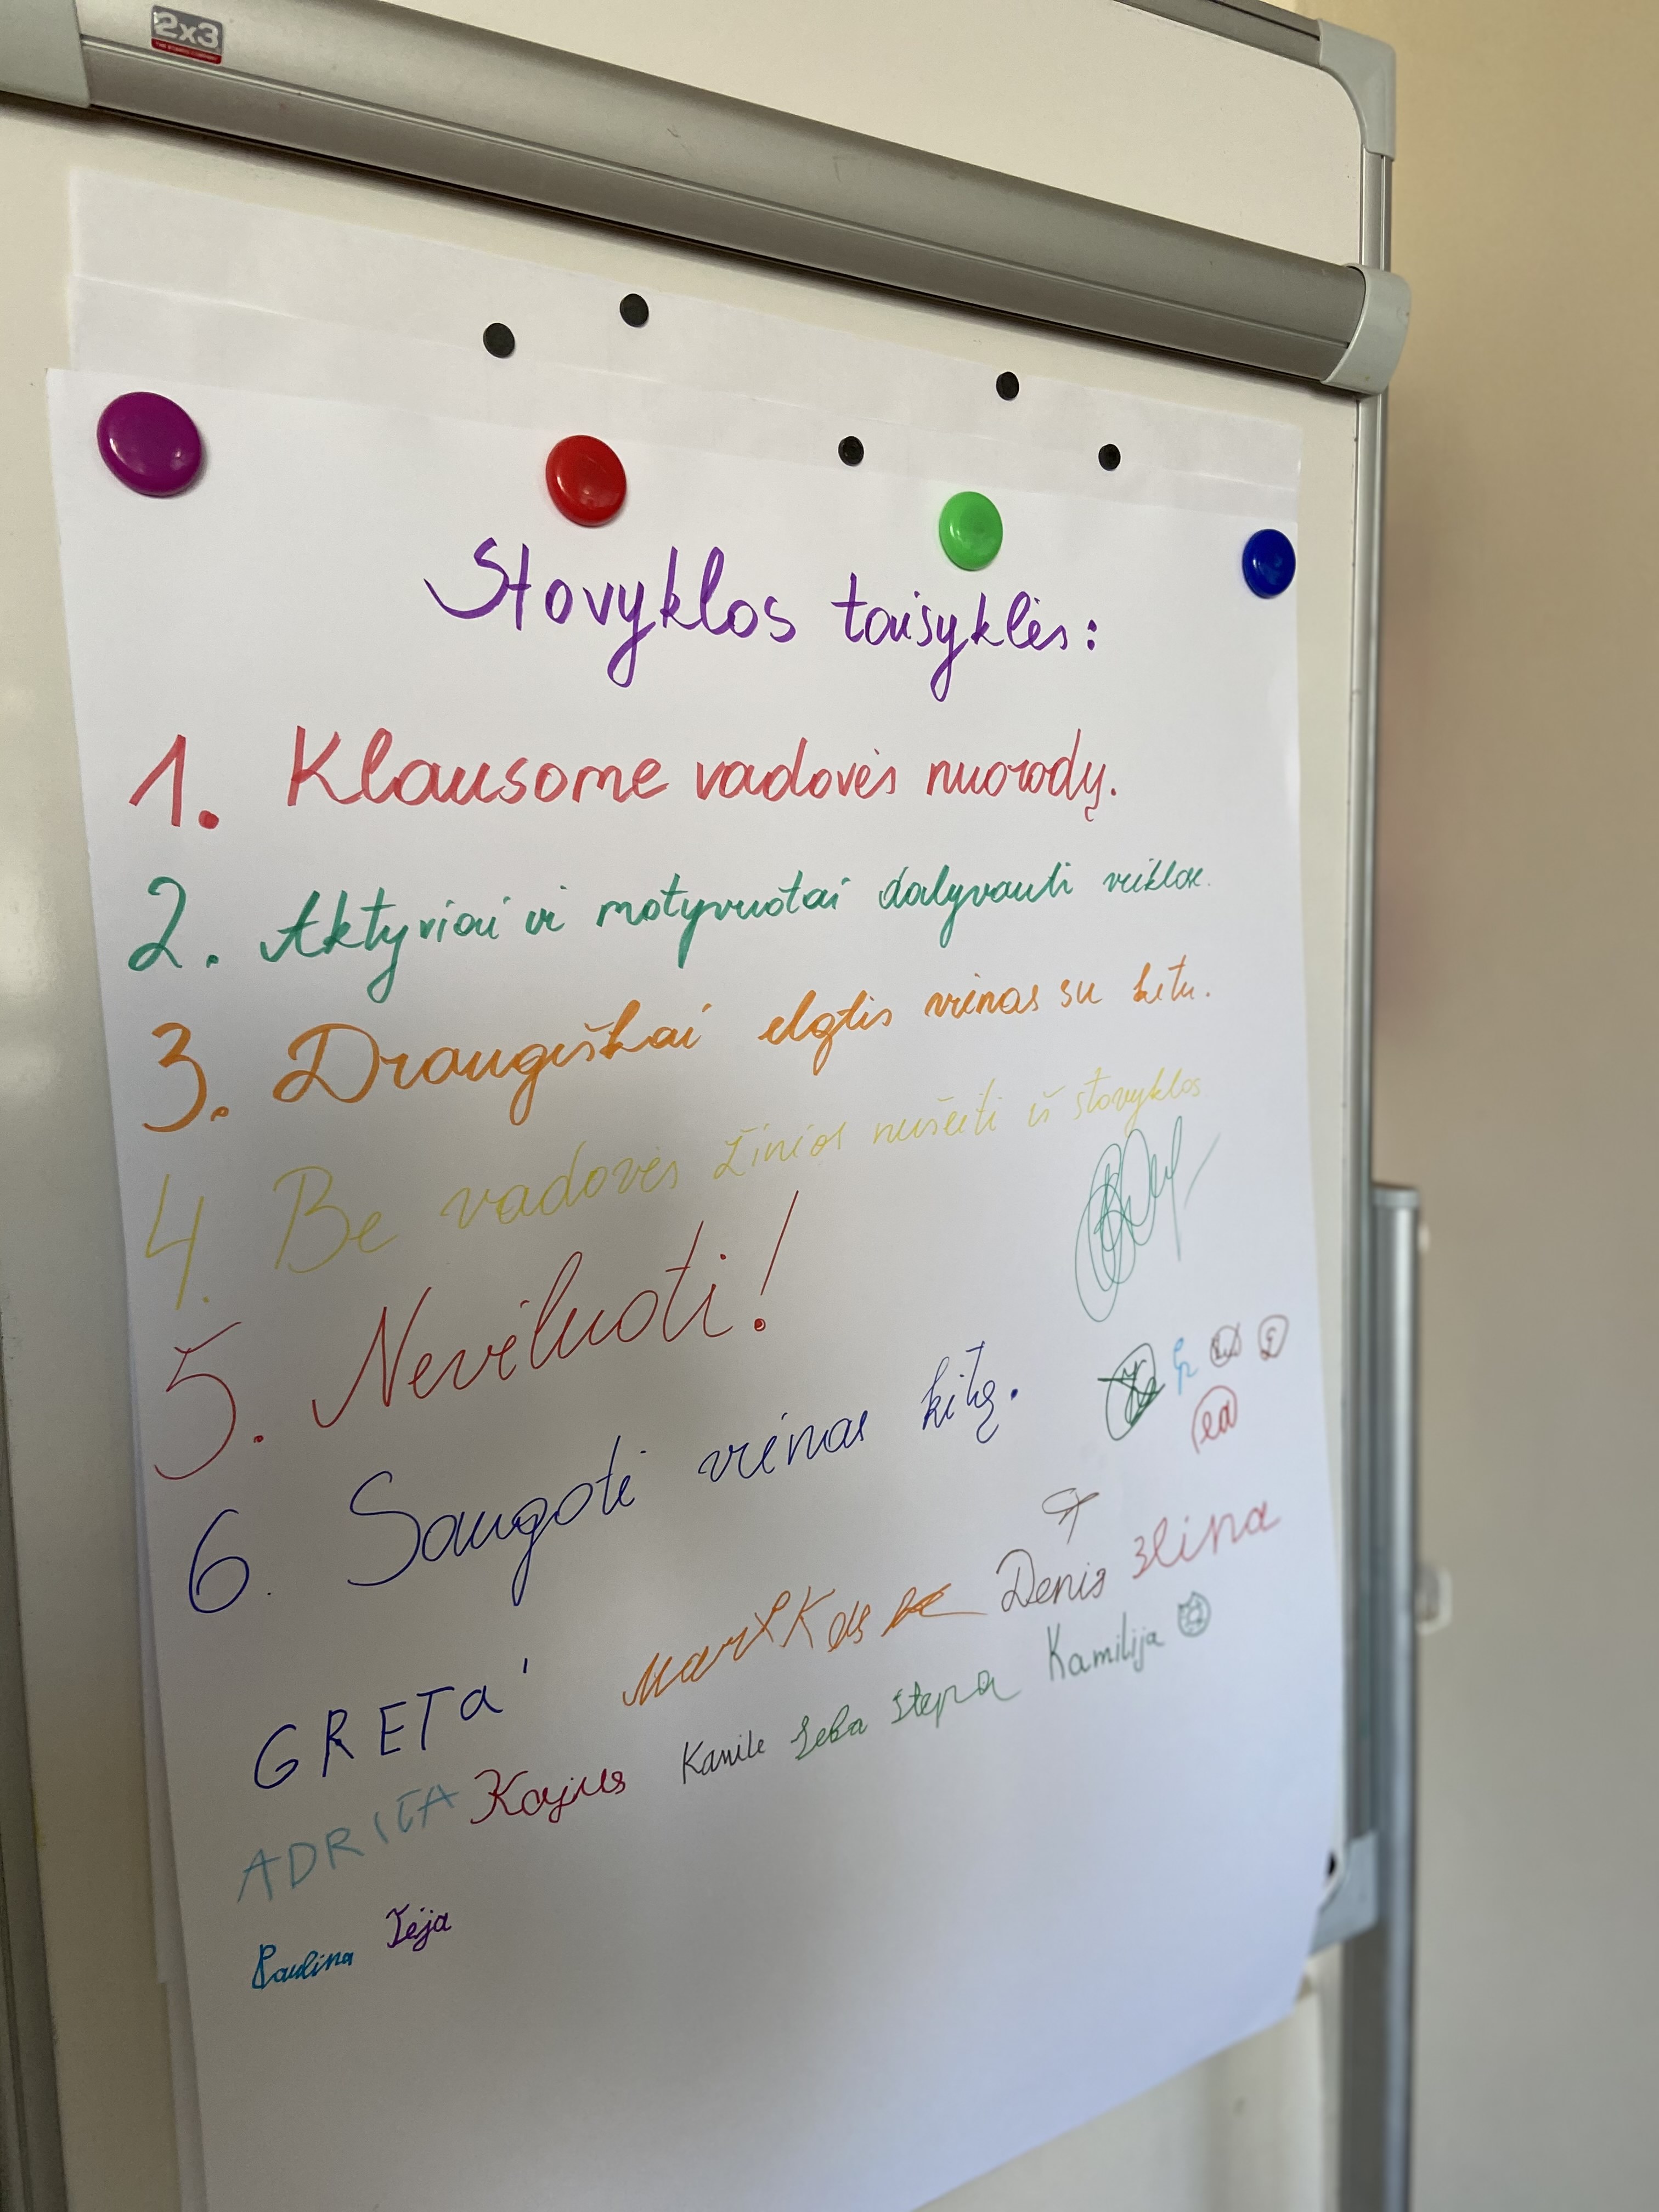 2x3
Stovyklos taisyklės:
1. Klausome vadovės nuorodų.
2. Aktyviai ir motyvuotai dalyvauti veiklose.
3. Draugiškai elgtis vienas su kitu.
4. Be vadovės žinios nušeiti iš stovyklos
5. Nevėluoti!
6. Saugoti vienas kitą.
ea
GRETA Denis
Kajus Kamile Stepa Kamilija
Paulina Lėja